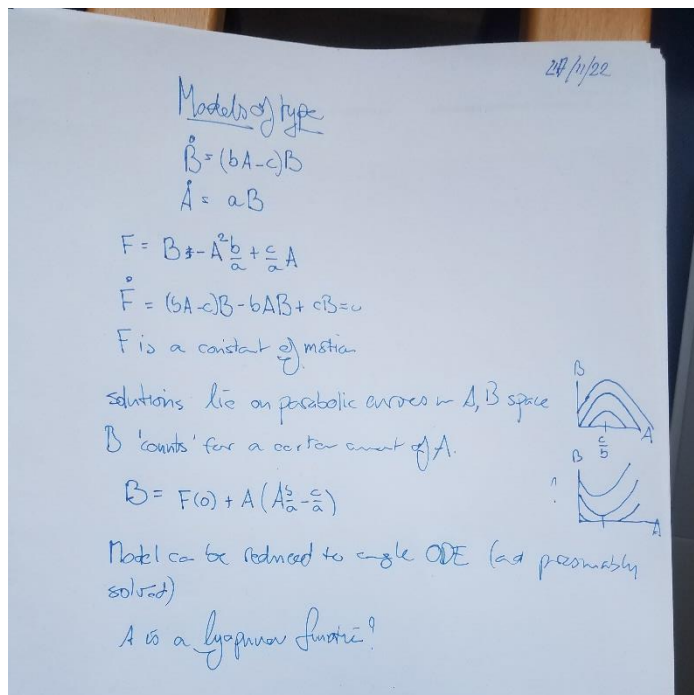 27/11/22
Models of type
Ḃ = (bA-c)B
Ȧ = aB
F = B - A² b/a + c/a A
Ḟ = (bA-c)B - bAB + cB = 0
F is a constant of motion
solutions lie on parabolic curves in A, B space
B 'counts' for a certain amount of A.
B = F(0) + A (A b/a - c/a)
Model can be reduced to single ODE (and presumably
solved)
A is a lyapunov function?
B
A
c/b
B
?
A